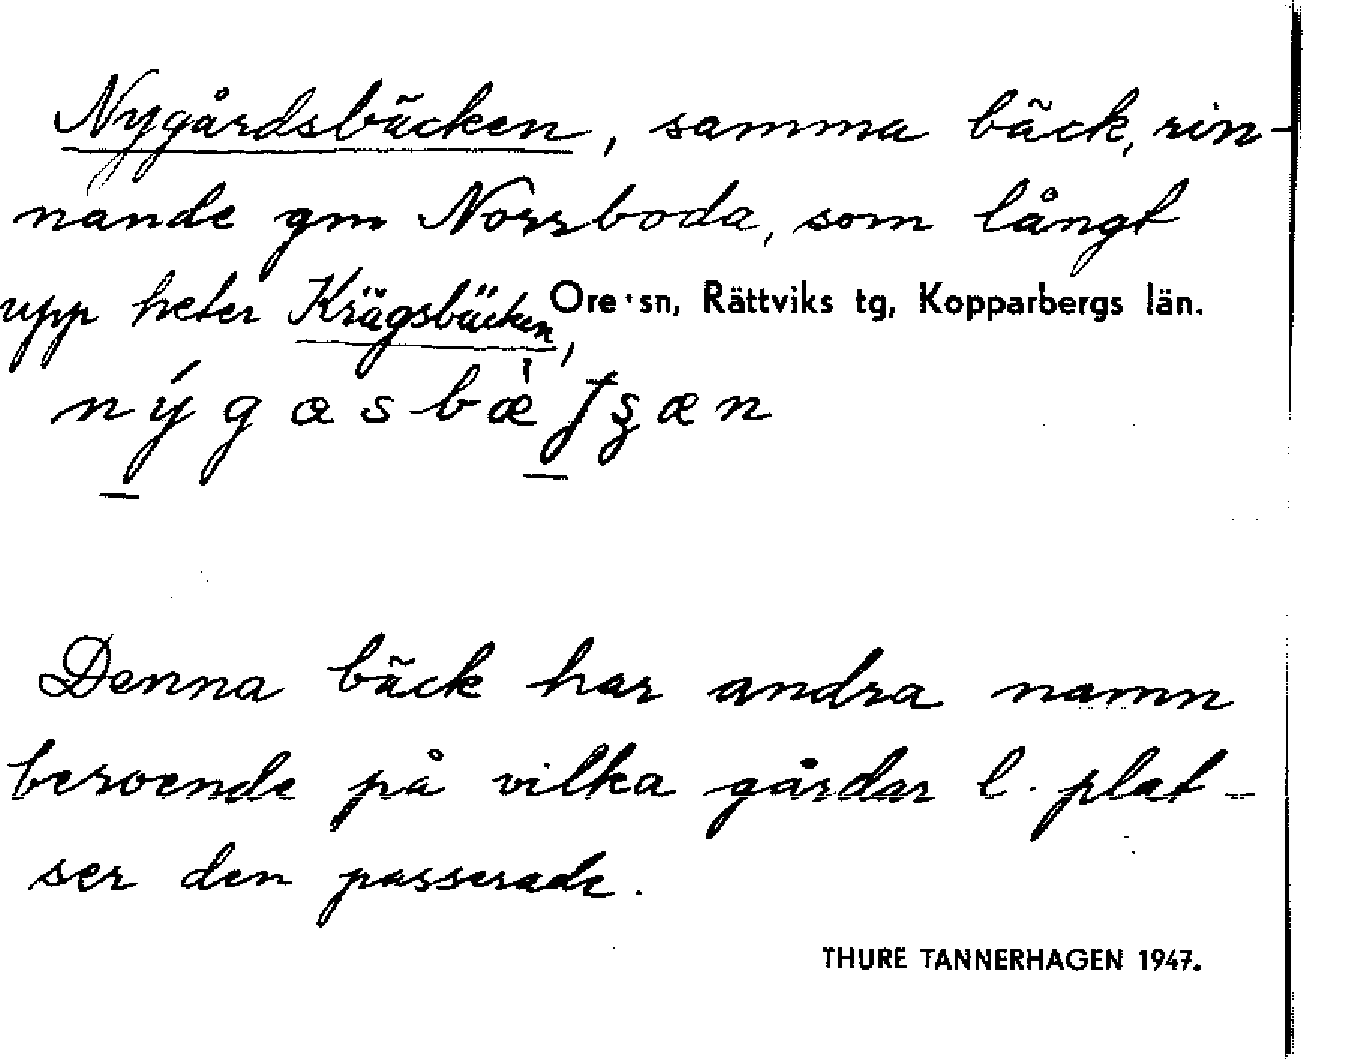 Nygårdsbäcken, samma bäck, rin-
nande gm Norrboda, som långt
upp heter Krägsbäcken,
Ore sn, Rättviks tg, Kopparbergs län.
Denna bäck har andra namn
beroende på vilka gårdar l. plat-
ser den passerade.
THURE TANNERHAGEN 1947.